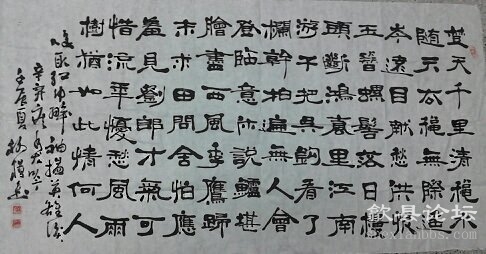 楚天千里清穐水
随天去穐無際遥
岑遠目献愁供恨
玉簪螺髻落日樓
頭断鴻聲里江南
游子把吴鈎看了
欄幹拍遍無人會
登臨意休說鱸堪
膾盡西風季鷹歸
未求田問舍怕應
羞見劉郎才氣可
惜流年憂愁風雨
樹猶如此情何人
唤取红巾翠袖揾英雄淚
辛弃疾水龙吟
壬辰夏
歙县论坛